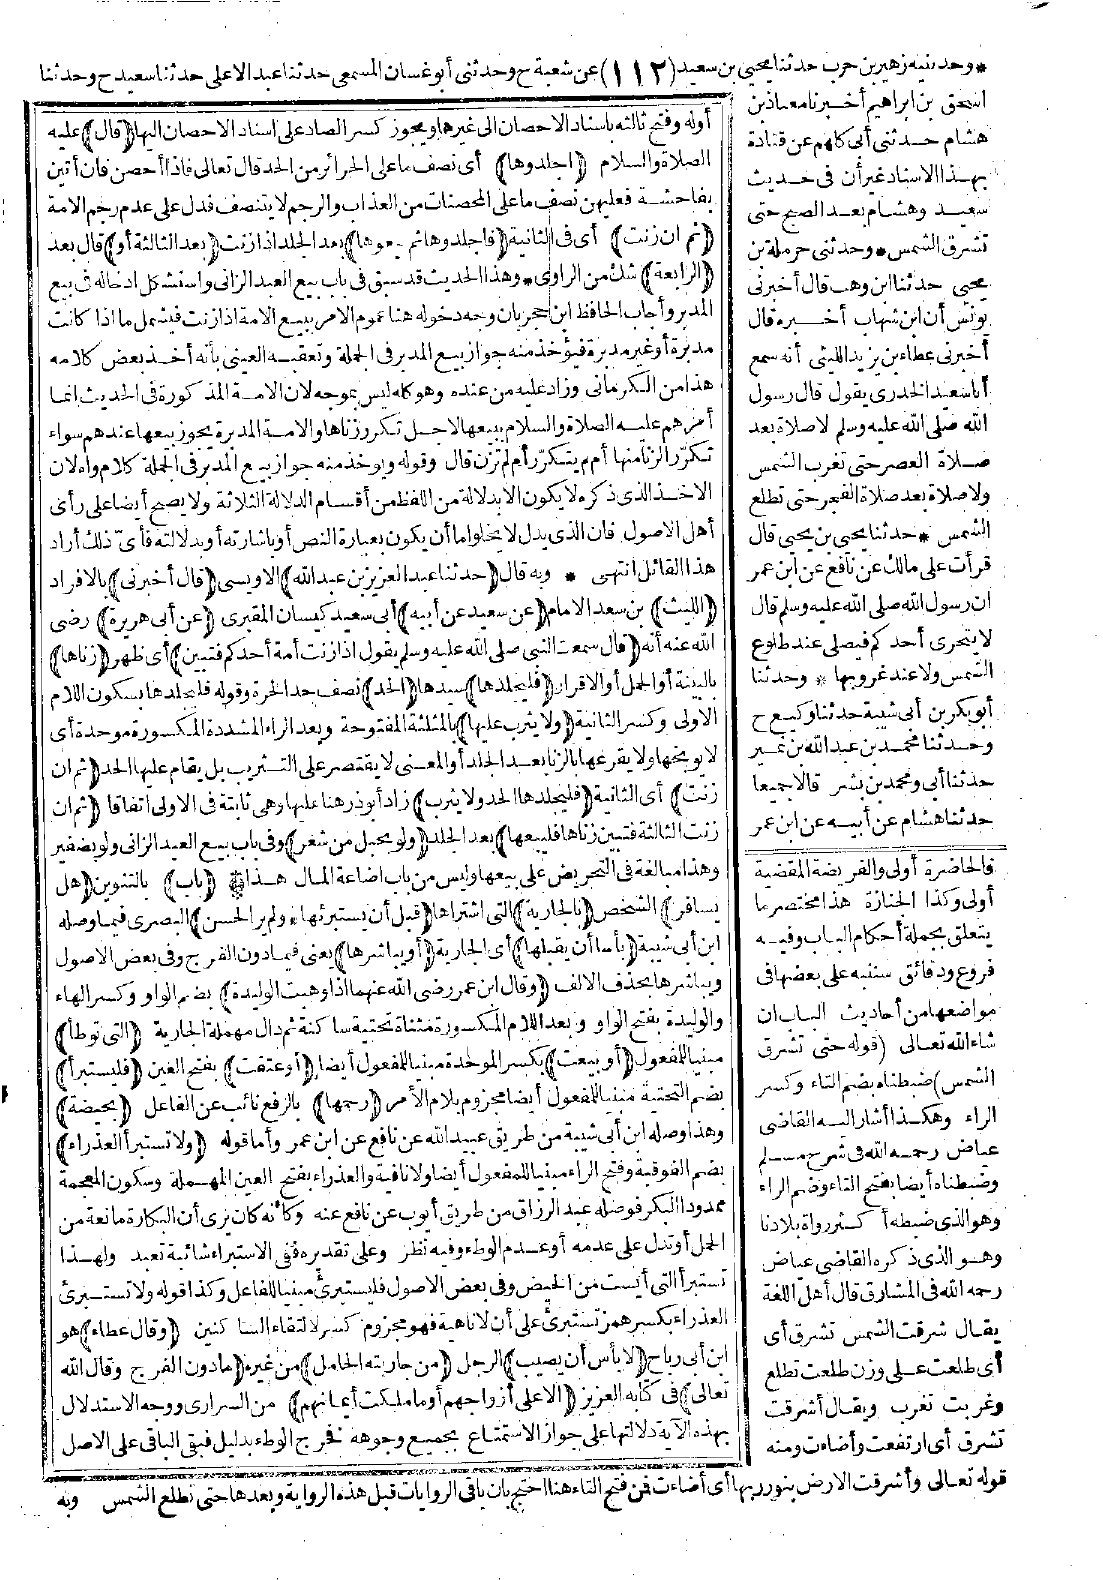 * وحدثنيه زهير بن حرب حدثنا يحيى بن سعيد (١١٢) عن شعبة ح وحدثني أبو غسان المسمعي حدثنا عبد الاعلى حدثنا سعيد ح وحدثنا
اسحق بن ابراهيم أخبرنا معاذ بن
هشام حدثني أبي كلهم عن قتادة
بهذا الاسناد غير أن في حديث
سعيد وهشام بعد الصبح حتى
تشرق الشمس * وحدثني حرملة بن
يحيى حدثنا ابن وهب قال أخبرني
يونس أن ابن شهاب أخبره قال
أخبرني عطاء بن يزيد الليثي أنه سمع
أبا سعيد الخدري يقول قال رسول
الله صلى الله عليه وسلم لا صلاة بعد
صلاة العصر حتى تغرب الشمس
ولا صلاة بعد صلاة الفجر حتى تطلع
الشمس * حدثنا يحيى بن يحيى قال
قرأت على مالك عن نافع عن ابن عمر
ان رسول الله صلى الله عليه وسلم قال
لا يتحرى أحدكم فيصلي عند طلوع
الشمس ولا عند غروبها * وحدثنا
أبو بكر بن أبي شيبة حدثنا وكيع ح
وحدثنا محمد بن عبد الله بن نمير
حدثنا أبي ومحمد بن بشر قالا جميعا
حدثنا هشام عن أبيه عن ابن عمر
فالحاضرة أولى والفريضة المقضية
أولى وكذا الجنازة هذا مختصر ما
يتعلق بجملة أحكام الباب وفيه
فروع ودقائق سننبه على بعضها في
مواضعها من أحاديث الباب ان
شاء الله تعالى (قوله حتى تشرق
الشمس) ضبطناه بضم التاء وكسر
الراء وهكذا أشار اليه القاضي
عياض رحمه الله في شرح مسلم
وضبطناه أيضا بفتح التاء وضم الراء
وهو الذي ضبطه أكثر رواة بلادنا
وهو الذي ذكره القاضي عياض
رحمه الله في المشارق قال أهل اللغة
يقال شرقت الشمس تشرق أي
أي طلعت على وزن طلعت تطلع
وغربت تغرب ويقال أشرقت
تشرق أي ارتفعت وأضاءت ومنه
أوله وفتح ثالثه باسناد الاحصان الى غيرها ويجوز كسر الصاد على اسناد الاحصان اليها (قال) عليه
الصلاة والسلام (اجلدوها) أي نصف ما على الحرائر من الحد قال تعالى فاذا أحصن فان أتين
بفاحشة فعليهن نصف ما على المحصنات من العذاب والرجم لا يتنصف فدل على عدم رجم الامة
(ثم ان زنت) أي في الثانية (فاجلدوها ثم بيعوها) بعد الجلد اذا زنت (بعد الثالثة أو) قال بعد
(الرابعة) شك من الراوي * وهذا الحديث قد سبق في باب بيع العبد الزاني واستشكل ادخاله في بيع
المدبر وأجاب الحافظ ابن حجر بان وجه دخوله هنا عموم الامر ببيع الامة اذا زنت فيشمل ما اذا كانت
مدبرة أو غير مدبرة فيؤخذ منه جواز بيع المدبر في الجملة وتعقبه العيني بأنه أخذ بعض كلامه
هذا من الكرماني وزاد عليه من عنده وهو كله ليس بموجه لان الامة المذكورة في الحديث انما
أمرهم عليه الصلاة والسلام ببيعها لاجل تكرر زناها والامة المدبرة يجوز بيعها عندهم سواء
تكرر الزنا منها أم لم يتكرر أم لم تزن قال وقوله ويؤخذ منه جواز بيع المدبر في الجملة كلام واه لان
الاخذ الذي ذكره لا يكون الا بدلالة من اللفظ من أقسام الدلالة الثلاثة ولا يصح أيضا على رأي
أهل الاصول فان الذي يدل لا يخلو اما أن يكون بعبارة النص أو باشارته أو بدلالته فأي ذلك أراد
هذا القائل انتهى * وبه قال (حدثنا عبد العزيز بن عبد الله) الاويسي (قال أخبرني) بالافراد
(الليث) بن سعد الامام (عن سعيد عن أبيه) أبي سعيد كيسان المقبري (عن أبي هريرة) رضي
الله عنه أنه (قال سمعت النبي صلى الله عليه وسلم يقول اذا زنت أمة أحدكم فتبين) أي ظهر (زناها)
بالبينة أو الحمل أو الاقرار (فليجلدها) سيدها (الحد) نصف حد الحرة وقوله فليجلدها بسكون اللام
الاولى وكسر الثانية (ولا يثرب عليها) بالمثلثة المفتوحة وبعد الراء المشددة المكسورة موحدة أي
لا يوبخها ولا يقرعها بالزنا بعد الجلد أو المعنى لا يقتصر على التثريب بل يقام عليها الحد (ثم ان
زنت) أي الثانية (فليجلدها الحد ولا يثرب) زاد أبو ذر هنا عليها وهي ثابتة في الاولى اتفاقا (ثم ان
زنت الثالثة فتبين زناها فليبعها) بعد الجلد (ولو بحبل من شعر) وفي باب بيع العبد الزاني ولو بضفير
وهذا مبالغة في التحريض على بيعها وليس من باب اضاعة المال هذا * (باب) بالتنوين (هل
يسافر) الشخص (بالجارية) التي اشتراها (قبل أن يستبرئها * ولم ير الحسن) البصري فيما وصله
ابن أبي شيبة (بأسا أن يقبلها) أي الجارية (أو يباشرها) يعني فيما دون الفرج وفي بعض الاصول
ويباشرها بحذف الالف (وقال ابن عمر رضي الله عنهما اذا وهبت الوليدة) بضم الواو وكسر الهاء
والوليدة بفتح الواو وبعد اللام المكسورة مثناة تحتية ساكنة ثم دال مهملة الجارية (التي توطأ)
مبنيا للمفعول (أو بيعت) بكسر الموحدة مبنيا للمفعول أيضا (أو عتقت) بفتح العين (فليستبرأ)
بضم التحتية مبنيا للمفعول أيضا مجزوم بلام الأمر (رحمها) بالرفع نائب عن الفاعل (بحيضة)
وهذا وصله ابن أبي شيبة من طريق عبيد الله عن نافع عن ابن عمر وأما قوله (ولا تستبرأ العذراء)
بضم الفوقية وفتح الراء مبنيا للمفعول أيضا ولا نافية والعذراء بفتح العين المهملة وسكون المعجمة
ممدودا البكر فوصله عبد الرزاق من طريق أيوب عن نافع عنه وكأنه كان نرى أن البكارة مانعة من
الحمل أو تدل على عدمه أو عدم الوطء وفيه نظر وعلى تقديره ففي الاستبراء شائبة تعبد ولهذا
تستبرأ التي أيست من الحيض وفي بعض الاصول فليستبرئ مبنيا للفاعل وكذا قوله ولا تستبرئ
العذراء بكسر همز تستبرئ على أن لا ناهية فهو مجزوم كسر لالتقاء الساكنين (وقال عطاء) هو
ابن أبي رباح (لا بأس أن يصيب) الرجل (من جاريته الحامل) من غيره (ما دون الفرج وقال الله
تعالى) في كتابه العزيز (الا على أزواجهم أو ما ملكت أيمانهم) من السراري ووجه الاستدلال
بهذه الآية دلالتها على جواز الاستمتاع بجميع وجوهه فخرج الوطء بدليل فبقي الباقي على الاصل
قوله تعالى وأشرقت الارض بنور ربها أي أضاءت فمن فتح التاء هنا احتج بان باقي الروايات قبل هذه الرواية وبعدها حتى تطلع الشمس وبه